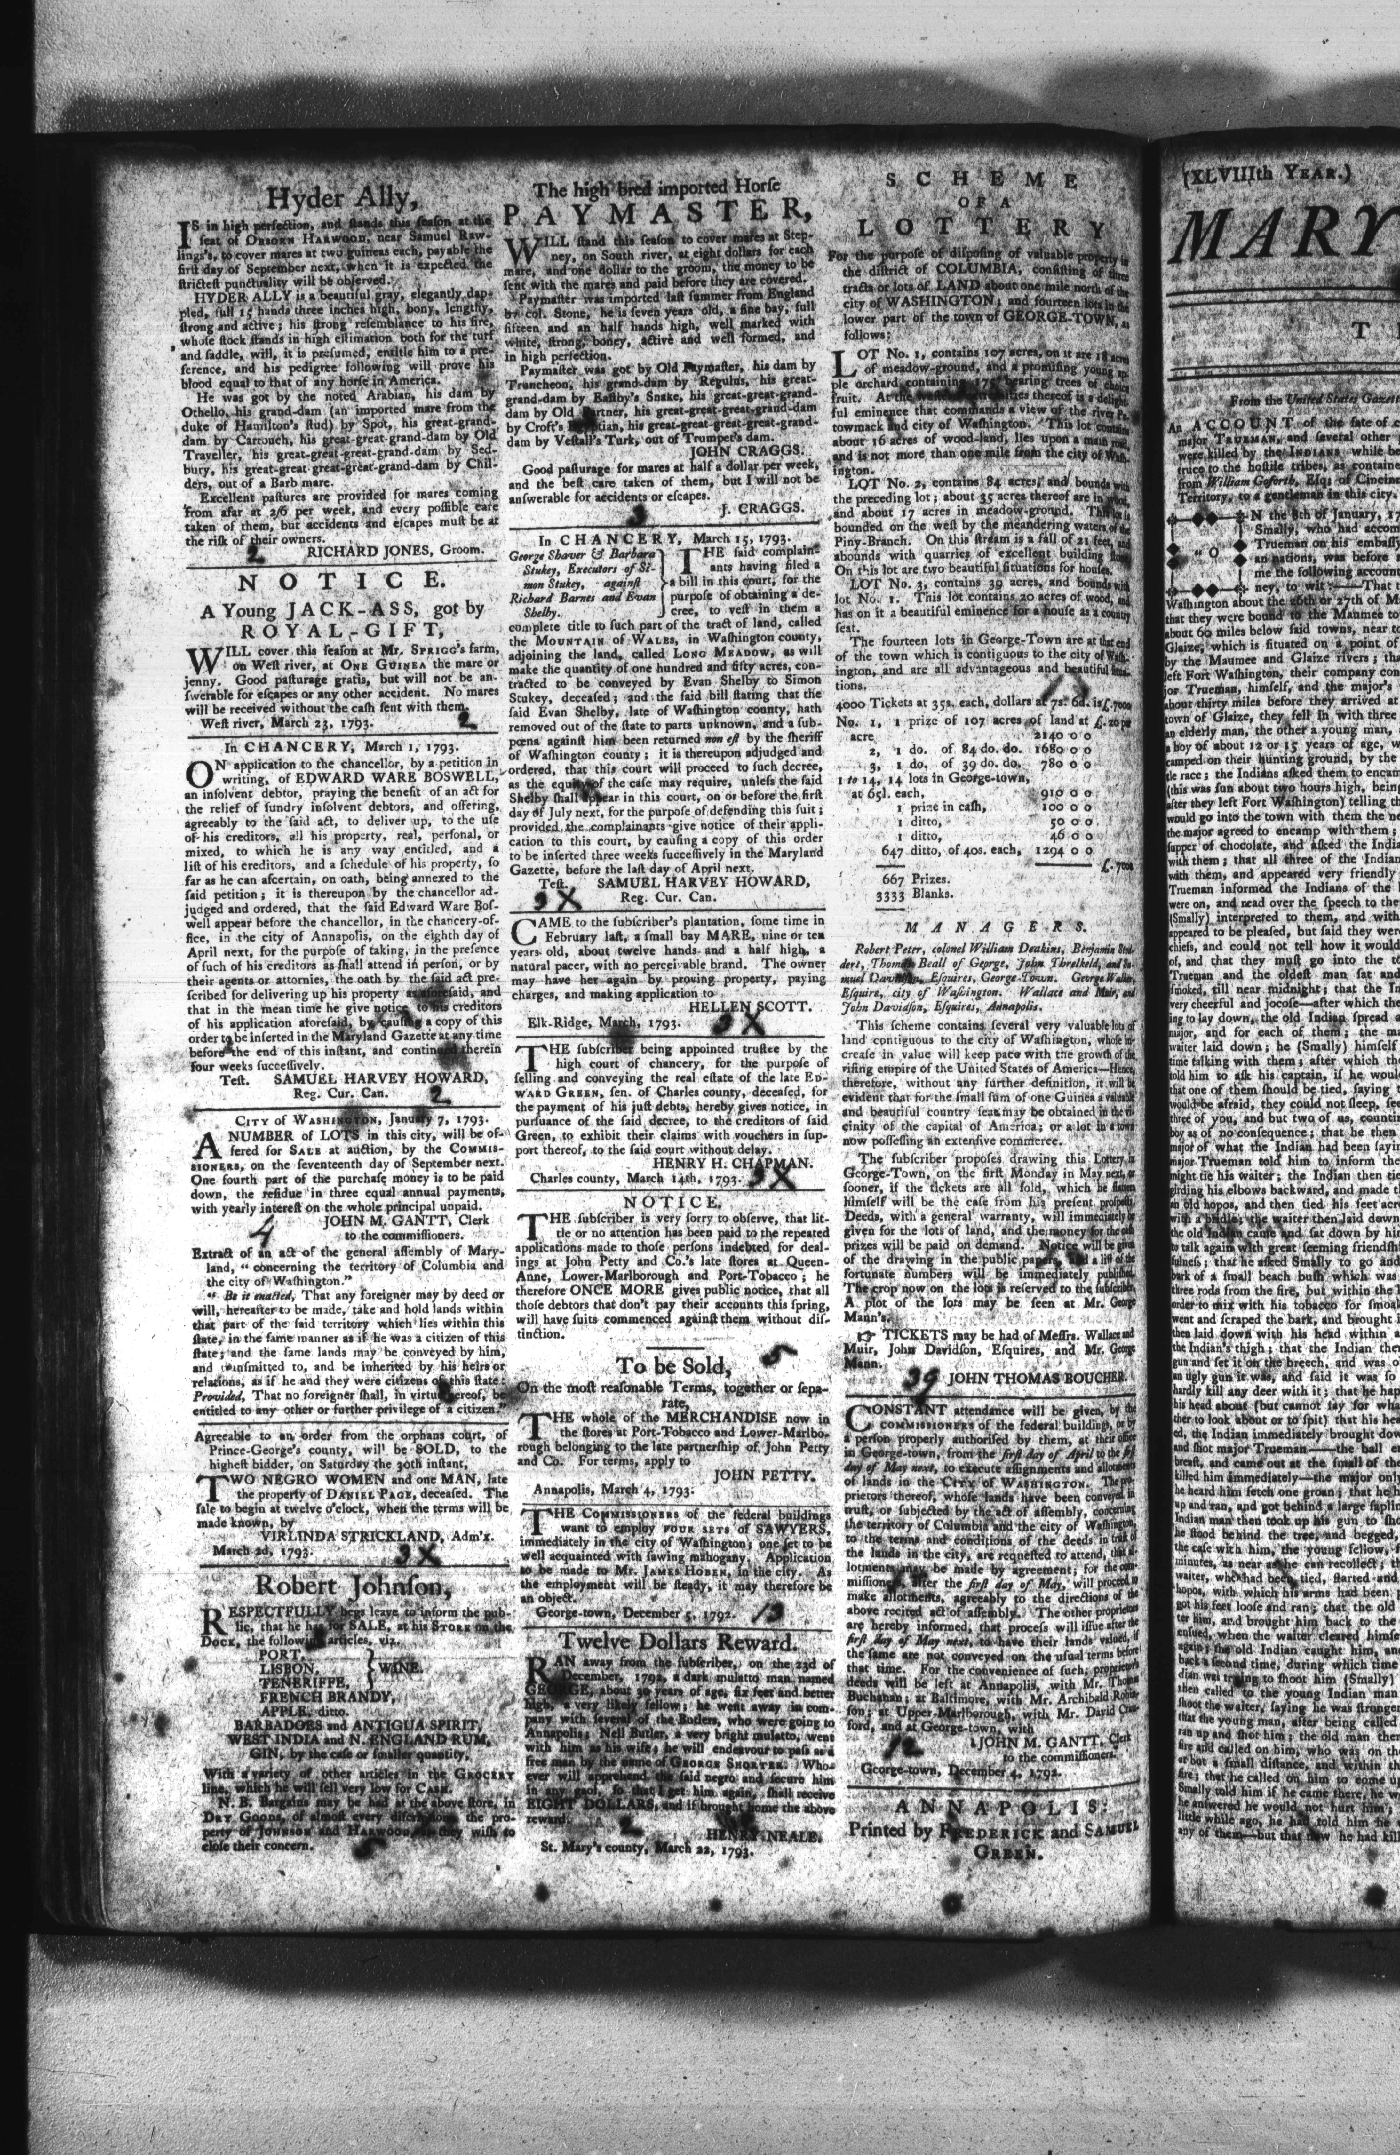 Hyder Ally,
IS in high perfection, and stands this season at the
seat of OSBORN HARWOOD, near Samuel Raw-
lings's, to cover mares at two guineas each, payable the
first day of September next, when it is expected the
strictest punctuality will be observed.
HYDER ALLY is a beautiful gray, elegantly dap-
pled, full 15 hands three inches high, bony, lengthy,
strong and active; his strong resemblance to his sire,
whose stock stands in high estimation both for the turf
and saddle, will, it is presumed, entitle him to a pre-
ference, and his pedigree following will prove his
blood equal to that of any horse in America.
He was got by the noted Arabian, his dam by
Othello, his grand-dam (an imported mare from the
duke of Hamilton's stud) by Spot, his great-grand-
dam by Cartouch, his great-great-grand-dam by Old
Traveller, his great-great-great-grand-dam by Sed-
bury, his great-great-great-grand-dam by Chil-
ders, out of a Barb mare.
Excellent pastures are provided for mares coming
from afar at 2/6 per week, and every possible care
taken of them, but accidents and escapes must be at
the risk of their owners.
2 RICHARD JONES, Groom.
NOTICE.
A Young JACK-ASS, got by
ROYAL-GIFT,
WILL cover this season at Mr. SPRIGG's farm,
on West river, at ONE GUINEA the mare or
jenny. Good pasturage gratis, but will not be an-
swerable for escapes or any other accident. No mares
will be received without the cash sent with them.
West river, March 23, 1793. 2
In CHANCERY, March 1, 1793.
ON application to the chancellor, by a petition in
writing, of EDWARD WARE BOSWELL,
an insolvent debtor, praying the benefit of an act for
the relief of sundry insolvent debtors, and offering,
agreeably to the said act, to deliver up, to the use
of his creditors, all his property, real, personal, or
mixed, to which he is any way entitled, and a
list of his creditors, and a schedule of his property, so
far as he can ascertain, on oath, being annexed to the
said petition; it is thereupon by the chancellor ad-
judged and ordered, that the said Edward Ware Bos-
well appear before the chancellor, in the chancery-of-
fice, in the city of Annapolis, on the eighth day of
April next, for the purpose of taking, in the presence
of such of his creditors as shall attend in person, or by
their agents or attornies, the oath by the said act pre-
scribed for delivering up his property as aforesaid, and
that in the mean time he give notice to his creditors
of his application aforesaid, by causing a copy of this
order to be inserted in the Maryland Gazette at any time
before the end of this instant, and continued therein
four weeks successively.
Test. SAMUEL HARVEY HOWARD,
Reg. Cur. Can. 2
CITY OF WASHINGTON, January 7, 1793.
A NUMBER of LOTS in this city, will be of-
fered for SALE at auction, by the COMMIS-
SIONERS, on the seventeenth day of September next.
One fourth part of the purchase money is to be paid
down, the residue in three equal annual payments,
with yearly interest on the whole principal unpaid.
4 JOHN M. GANTT, Clerk
to the commissioners.
Extract of an act of the general assembly of Mary-
land, "concerning the territory of Columbia and
the city of Washington."
"Be it enacted, That any foreigner may by deed or
will, hereafter to be made, take and hold lands within
that part of the said territory which lies within this
state, in the same manner as if he was a citizen of this
state; and the same lands may be conveyed by him,
and transmitted to, and be inherited by his heirs or
relations, as if he and they were citizens of this state:
Provided, That no foreigner shall, in virtue hereof, be
entitled to any other or further privilege of a citizen."
Agreeable to an order from the orphans court, of
Prince-George's county, will be SOLD, to the
highest bidder, on Saturday the 30th instant,
TWO NEGRO WOMEN and one MAN, late
the property of DANIEL PAGE, deceased. The
sale to begin at twelve o'clock, when the terms will be
made known, by
VIRLINDA STRICKLAND, Adm'x.
March 2d, 1793. 3X
Robert Johnson,
RESPECTFULLY begs leave to inform the pub-
lic, that he has for SALE, at his STORE on the
DOCK, the following articles, viz.
PORT,
LISBON, } WINE.
TENERIFFE,
FRENCH BRANDY,
APPLE, ditto.
BARBADOES and ANTIGUA SPIRIT,
WEST INDIA and N. ENGLAND RUM,
GIN, by the case or smaller quantity,
With a variety of other articles in the GROCERY
line, which he will sell very low for CASH.
N. B. Bargains may be had at the above store, in
DRY GOODS, of almost every description, the pro-
perty of JOHNSON and HARWOOD, as they wish to
close their concern. 5
The high bred imported Horse
PAYMASTER,
WILL stand this season to cover mares at Step-
ney, on South river, at eight dollars for each
mare, and one dollar to the groom, the money to be
sent with the mares and paid before they are covered.
Paymaster was imported last summer from England
by col. Stone, he is seven years old, a fine bay, full
fifteen and an half hands high, well marked with
white, strong, boney, active and well formed, and
in high perfection.
Paymaster was got by Old Paymaster, his dam by
Truncheon, his grand-dam by Regulus, his great-
grand-dam by Eastby's Snake, his great-great-grand-
dam by Old Partner, his great-great-great-grand-dam
by Croft's Egyptian, his great-great-great-great-grand-
dam by Vestall's Turk, out of Trumpet's dam.
JOHN CRAGGS.
Good pasturage for mares at half a dollar per week,
and the best care taken of them, but I will not be
answerable for accidents or escapes.
3 J. CRAGGS.
In CHANCERY, March 15, 1793.
George Shaver & Barbara
Stukey, Executors of Si-
mon Stukey, against
Richard Barnes and Evan
Shelby.
} THE said complain-
ants having filed a
bill in this court, for the
purpose of obtaining a de-
cree, to vest in them a
complete title to such part of the tract of land, called
the MOUNTAIN OF WALES, in Washington county,
adjoining the land, called LONG MEADOW, as will
make the quantity of one hundred and fifty acres, con-
tracted to be conveyed by Evan Shelby to Simon
Stukey, deceased; and the said bill stating that the
said Evan Shelby, late of Washington county, hath
removed out of the state to parts unknown, and a sub-
pœna against him been returned non est by the sheriff
of Washington county; it is thereupon adjudged and
ordered, that this court will proceed to such decree,
as the equity of the case may require, unless the said
Shelby shall appear in this court, on or before the first
day of July next, for the purpose of defending this suit;
provided the complainants give notice of their appli-
cation to this court, by causing a copy of this order
to be inserted three weeks successively in the Maryland
Gazette, before the last day of April next.
Test. SAMUEL HARVEY HOWARD,
3X Reg. Cur. Can.
CAME to the subscriber's plantation, some time in
February last, a small bay MARE, nine or ten
years old, about twelve hands and a half high, a
natural pacer, with no perceivable brand. The owner
may have her again by proving property, paying
charges, and making application to
HELLEN SCOTT.
Elk-Ridge, March, 1793. 3X
THE subscriber being appointed trustee by the
high court of chancery, for the purpose of
selling and conveying the real estate of the late ED-
WARD GREEN, sen. of Charles county, deceased, for
the payment of his just debts, hereby gives notice, in
pursuance of the said decree, to the creditors of said
Green, to exhibit their claims with vouchers in sup-
port thereof, to the said court without delay.
HENRY H. CHAPMAN.
Charles county, March 14th, 1793. 3X
NOTICE.
THE subscriber is very sorry to observe, that lit-
tle or no attention has been paid to the repeated
applications made to those persons indebted for deal-
ings at John Petty and Co.'s late stores at Queen-
Anne, Lower-Marlborough and Port-Tobacco; he
therefore ONCE MORE gives public notice, that all
those debtors that don't pay their accounts this spring,
will have suits commenced against them without dis-
tinction.
To be Sold, 5
On the most reasonable Terms, together or sepa-
rate,
THE whole of the MERCHANDISE now in
the stores at Port-Tobacco and Lower-Marlbo-
rough belonging to the late partnership of John Petty
and Co. For terms, apply to
JOHN PETTY.
Annapolis, March 4, 1793.
THE COMMISSIONERS of the federal buildings
want to employ FOUR SETS of SAWYERS,
immediately in the city of Washington; one set to be
well acquainted with sawing mahogany. Application
to be made to Mr. JAMES HOBEN, in the city. As
the employment will be steady, it may therefore be
an object.
George-town, December 5, 1792. 13
Twelve Dollars Reward.
RAN away from the subscriber, on the 23d of
December, 1792, a dark mulatto man named
GEORGE, about 30 years of age, six feet and better
high, a very likely fellow; he went away in com-
pany with several of the Butlers, who were going to
Annapolis; Nell Butler, a very bright mulatto, went
with him as his wife; he will endeavour to pass as a
free man by the name of GEORGE SHORTER. Who-
ever will apprehend the said negro and secure him
in any gaol, so that I get him again, shall receive
EIGHT DOLLARS, and if brought home the above
reward.
2 HENRY NEALE.
St. Mary's county, March 22, 1793.
SCHEME
OF A
LOTTERY
For the purpose of disposing of valuable property in
the district of COLUMBIA, consisting of three
tracts or lots of LAND about one mile north of the
city of WASHINGTON; and fourteen lots in the
lower part of the town of GEORGE-TOWN, as
follows:
LOT No. 1, contains 107 acres, on it are 18 acres
of meadow-ground, and a promising young ap-
ple orchard containing 175 bearing trees of choice
fruit. At the thereof is a delight-
ful eminence that commands a view of the river Po-
towmack and city of Washington. This lot contains
about 16 acres of wood-land, lies upon a main road,
and is not more than one mile from the city of Wash-
ington.
LOT No. 2, contains 84 acres, and bounds with
the preceding lot; about 35 acres thereof are in wood,
and about 17 acres in meadow-ground. This lot is
bounded on the west by the meandering waters of the
Piny-Branch. On this stream is a fall of 21 feet, and
abounds with quarries of excellent building stone.
On this lot are two beautiful situations for houses.
LOT No. 3, contains 39 acres, and bounds with
lot No. 1. This lot contains 20 acres of wood, and
has on it a beautiful eminence for a house as a country
seat.
The fourteen lots in George-Town are at that end
of the town which is contiguous to the city of Wash-
ington, and are all advantageous and beautiful situa-
tions. 13
4000 Tickets at 35s. each, dollars at 7s. 6d. is £.7000
No. 1, 1 prize of 107 acres of land at £.20 per
acre, 2140 0 0
2, 1 do. of 84 do. do. 1680 0 0
3, 1 do. of 39 do. do. 780 0 0
1 to 14, 14 lots in George-town,
at 65l. each, 910 0 0
1 prize in cash, 100 0 0
1 ditto, 50 0 0
1 ditto, 46 0 0
647 ditto, of 40s. each, 1294 0 0
£.7000
667 Prizes.
3333 Blanks.
MANAGERS.
Robert Peter, colonel William Deakins, Benjamin Stod-
dert, Thomas Beall of George, John Threlkeld, and Sa-
muel Davidson, Esquires, George-Town. George Walker,
Esquire, city of Washington. Wallace and Muir, and
John Davidson, Esquires, Annapolis.
This scheme contains several very valuable lots of
land contiguous to the city of Washington, whose in-
crease in value will keep pace with the growth of the
rising empire of the United States of America—Hence,
therefore, without any further definition, it will be
evident that for the small sum of one Guinea a valuable
and beautiful country seat may be obtained in the vi-
cinity of the capital of America; or a lot in a town
now possessing an extensive commerce.
The subscriber proposes drawing this Lottery in
George-Town, on the first Monday in May next, or
sooner, if the tickets are all sold, which he flatters
himself will be the case from his present prospects.
Deeds, with a general warranty, will immediately be
given for the lots of land, and the money for the cash
prizes will be paid on demand. Notice will be given
of the drawing in the public papers, and a list of the
fortunate numbers will be immediately published.
The crop now on the lots is reserved to the subscriber.
A plot of the lots may be seen at Mr. George
Mann's.
☞ TICKETS may be had of Messrs. Wallace and
Muir, John Davidson, Esquires, and Mr. George
Mann.
39 JOHN THOMAS BOUCHER.
CONSTANT attendance will be given, by the
COMMISSIONERS of the federal buildings, or by
a person properly authorised by them, at their office
in George-town, from the first day of April to the first
day of May next, to execute assignments and allotments
of lands in the CITY OF WASHINGTON. The pro-
prietors thereof, whose lands have been conveyed in
trust, or subjected by the act of assembly, concerning
the territory of Columbia and the city of Washington,
to the terms and conditions of the deeds in trust of
the lands in the city, are requested to attend, that al-
lotments may be made by agreement; for the com-
missioners, after the first day of May, will proceed to
make allotments, agreeably to the directions of the
above recited act of assembly. The other proprietors
are hereby informed, that process will issue after the
first day of May next, to have their lands valued, if
the same are not conveyed on the usual terms before
that time. For the convenience of such, proprietors
deeds will be left at Annapolis, with Mr. Thomas
Buchanan; at Baltimore, with Mr. Archibald Robin-
son; at Upper-Marlborough, with Mr. David Craw-
ford, and at George-town, with
12 JOHN M. GANTT, Clerk
to the commissioners.
George-town, December 4, 1792.
ANNAPOLIS:
Printed by FREDERICK and SAMUEL
GREEN.
(XLVIIIth YEAR.)
MARY
T
From the United States Gazette
An ACCOUNT of the fate of
major TRUEMAN, and several other
were killed by the INDIANS while
truce to the hostile tribes, as contained
from William Goforth, Esq; of Cincin
Territory, to a gentleman in this city.
"ON the 8th of January, 17
Smally, who had accom
Trueman on his embassy
an nations, was before
me the following account
ney, to wit:—That
Washington about the 26th or 27th of M
that they were bound to the Maumee to
about 60 miles below said towns, near to
Glaize, which is situated on a point of
by the Maumee and Glaize rivers; tha
left Fort Washington, their company con
jor Trueman, himself, and the major's
about thirty miles before they arrived at
town of Glaize, they fell in with three
an elderly man, the other a young man,
a boy of about 12 or 15 years of age,
camped on their hunting ground, by the
tle race; the Indians asked them to encam
(this was sun about two hours high, being
after they left Fort Washington) telling
would go into the town with them the ne
the major agreed to encamp with them;
supper of chocolate, and asked the India
with them; that all three of the India
with them, and appeared very friendly
Trueman informed the Indians of the
were on, and read over the speech to the
(Smally) interpreted to them, and with
appeared to be pleased, but said they were
chiefs, and could not tell how it would
of, and that they must go into the to
Trueman and the oldest man sat and
smoked, till near midnight; that the In
very cheerful and jocose—after which the
ing to lay down, the old Indian spread a
major, and for each of them; the m
waiter laid down; he (Smally) himself
time talking with them; after which th
told him to ask his captain, if he woul
that one of them should be tied, saying
would be afraid, they could not sleep, see
three of you, and but two of us, countin
boy as of no consequence; that he then
major of what the Indian had been sayin
major Trueman told him to inform the
might tie his waiter; the Indian then tie
girding his elbows backward, and made
an old hopos, and then tied his feet acro
with a bridle; the waiter then laid down
the old Indian came and sat down by him
to talk again with great seeming friendsh
fulness; that he asked Smally to go and
bark of a small beach bush which was
three rods from the fire, but within the
order to mix with his tobacco for smok
went and scraped the bark, and brought
then laid down with his head within a
the Indian's thigh; that the Indian the
gun and set it on the breech, and was o
an ugly gun it was, and said it was so
hardly kill any deer with it; that he hap
his head about (but cannot say for wha
ther to look about or to spit) that his hea
ed, the Indian immediately brought dow
and shot major Trueman—the ball e
breast, and came out at the small of the
killed him immediately—the major only
he heard him fetch one groan; that he
up and ran, and got behind a large saplin
Indian man then took up his gun to sho
he stood behind the tree, and begged,
the case with him, the young fellow,
minutes, as near as he can recollect;
waiter, who had been tied, started and
hopos, with which his arms had been
got his feet loose and ran; that the old
ter him, and brought him back to the
ensued, when the waiter cleared himse
again; the old Indian caught him, and
back a second time, during which time
dian was trying to shoot him (Smally)
then called to the young Indian man
shoot the waiter, saying he was stronger
that the young man, after being called
ran up and shot him; the old man then
fire and called on him, who was on the
or but a small distance, and within th
fire; that he called on him to come
Smally told him if he came there, he w
he answered he would not hurt him;
little while ago, he had told him he
any of them—but that now he had kill